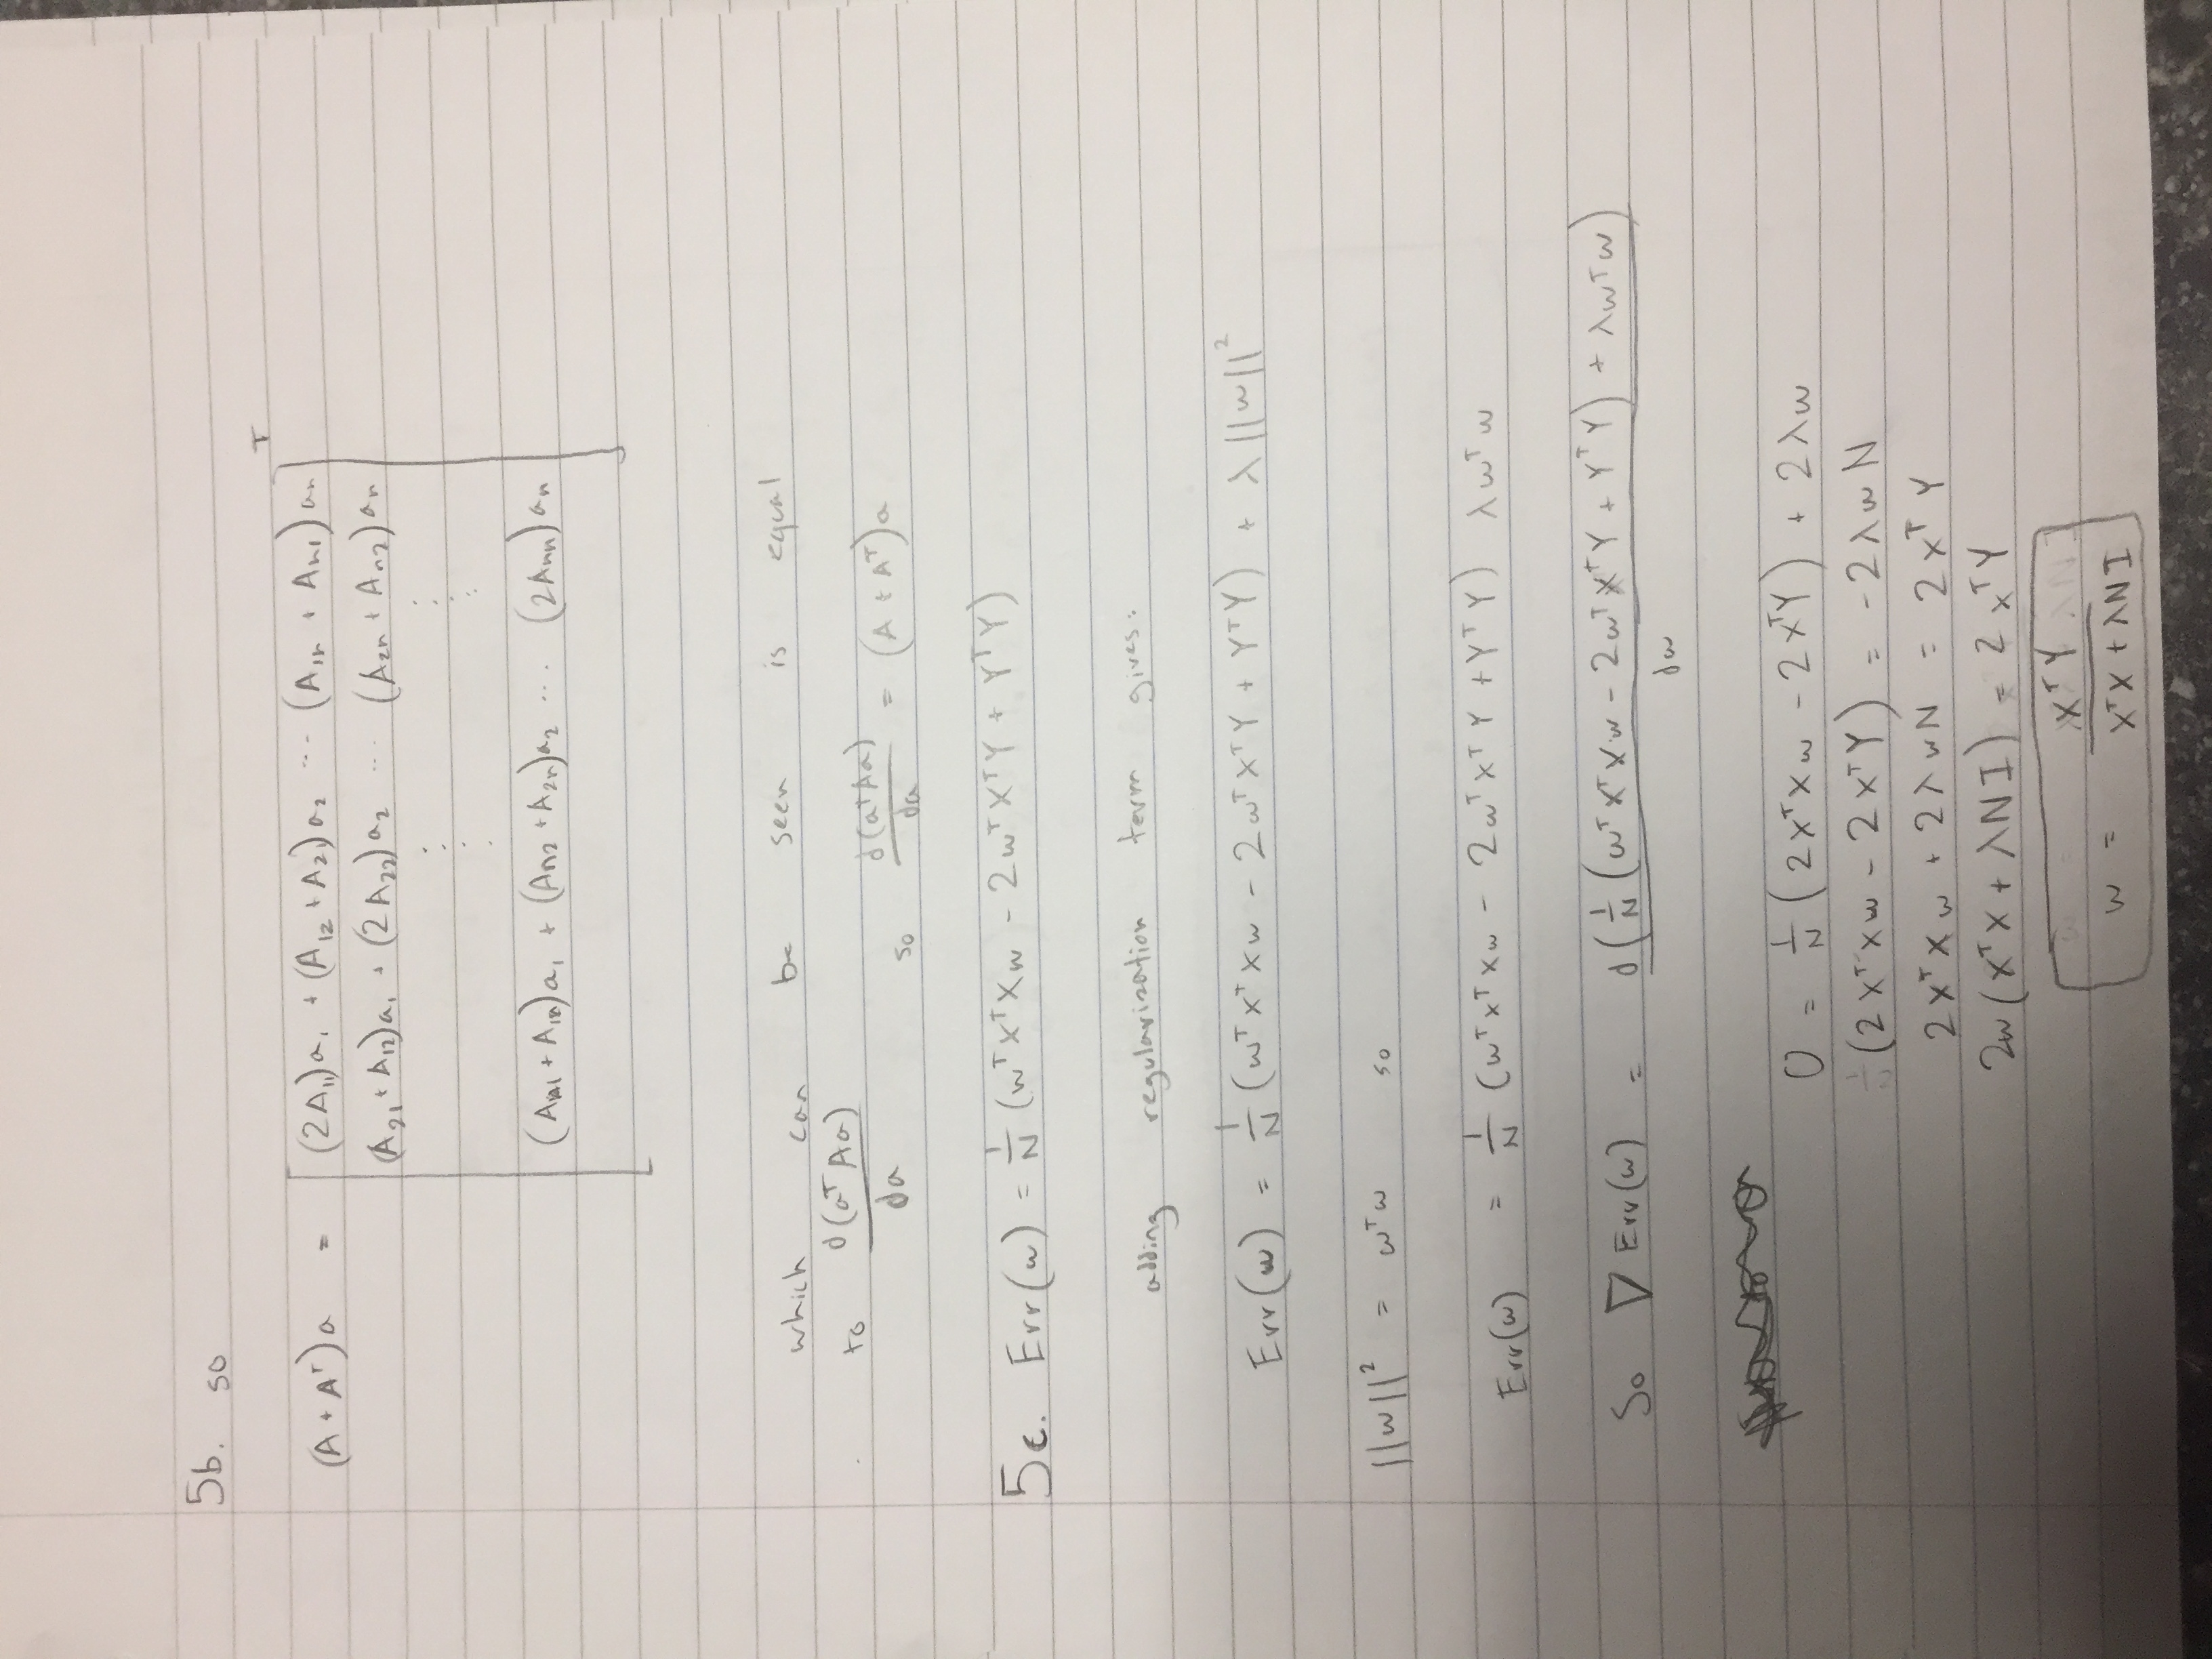 5b. so
(A + Aᵀ)a = [ (2A₁₁)a₁ + (A₁₂ + A₂₁)a₂ ... (A₁ₙ + Aₙ₁)aₙ ]ᵀ
(A₂₁ + A₁₂)a₁ + (2A₂₂)a₂ ... (A₂ₙ + Aₙ₂)aₙ
⋮ ⋮
(Aₙ₁ + A₁ₙ)a₁ + (Aₙ₂ + A₂ₙ)a₂ ... (2Aₙₙ)aₙ
which can be seen is equal
to d(aᵀAa)/da so d(aᵀAa)/da = (A + Aᵀ)a
5c. Err(w) = 1/N (wᵀXᵀXw - 2wᵀXᵀY + YᵀY)
adding regularization term gives:
Err(w) = 1/N (wᵀXᵀXw - 2wᵀXᵀY + YᵀY) + λ||w||²
||w||² = wᵀw so
Err(w) = 1/N (wᵀXᵀXw - 2wᵀXᵀY + YᵀY) λwᵀw
So ∇ Err(w) = d(1/N (wᵀXᵀXw - 2wᵀXᵀY + YᵀY) + λwᵀw)/dw
0 = 1/N (2XᵀXw - 2XᵀY) + 2λw
(2XᵀXw - 2XᵀY) = -2λwN
2XᵀXw + 2λwN = 2XᵀY
2w(XᵀX + λNI) = 2XᵀY
w = XᵀY/(XᵀX + λNI)